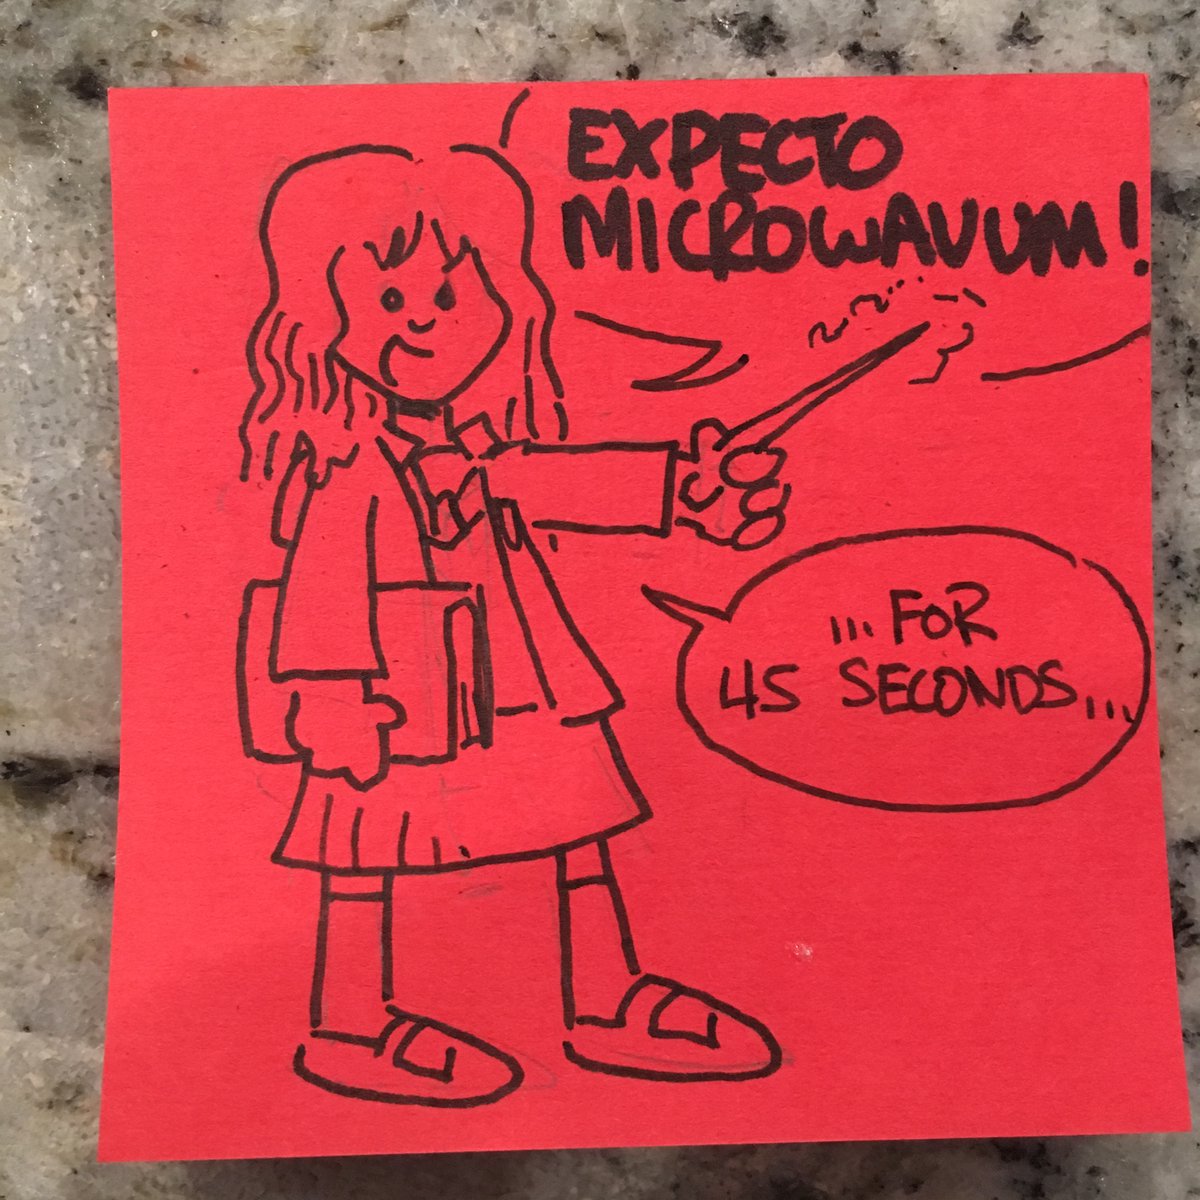 EXPECTO
MICROWAVUM!
...FOR
45 SECONDS...